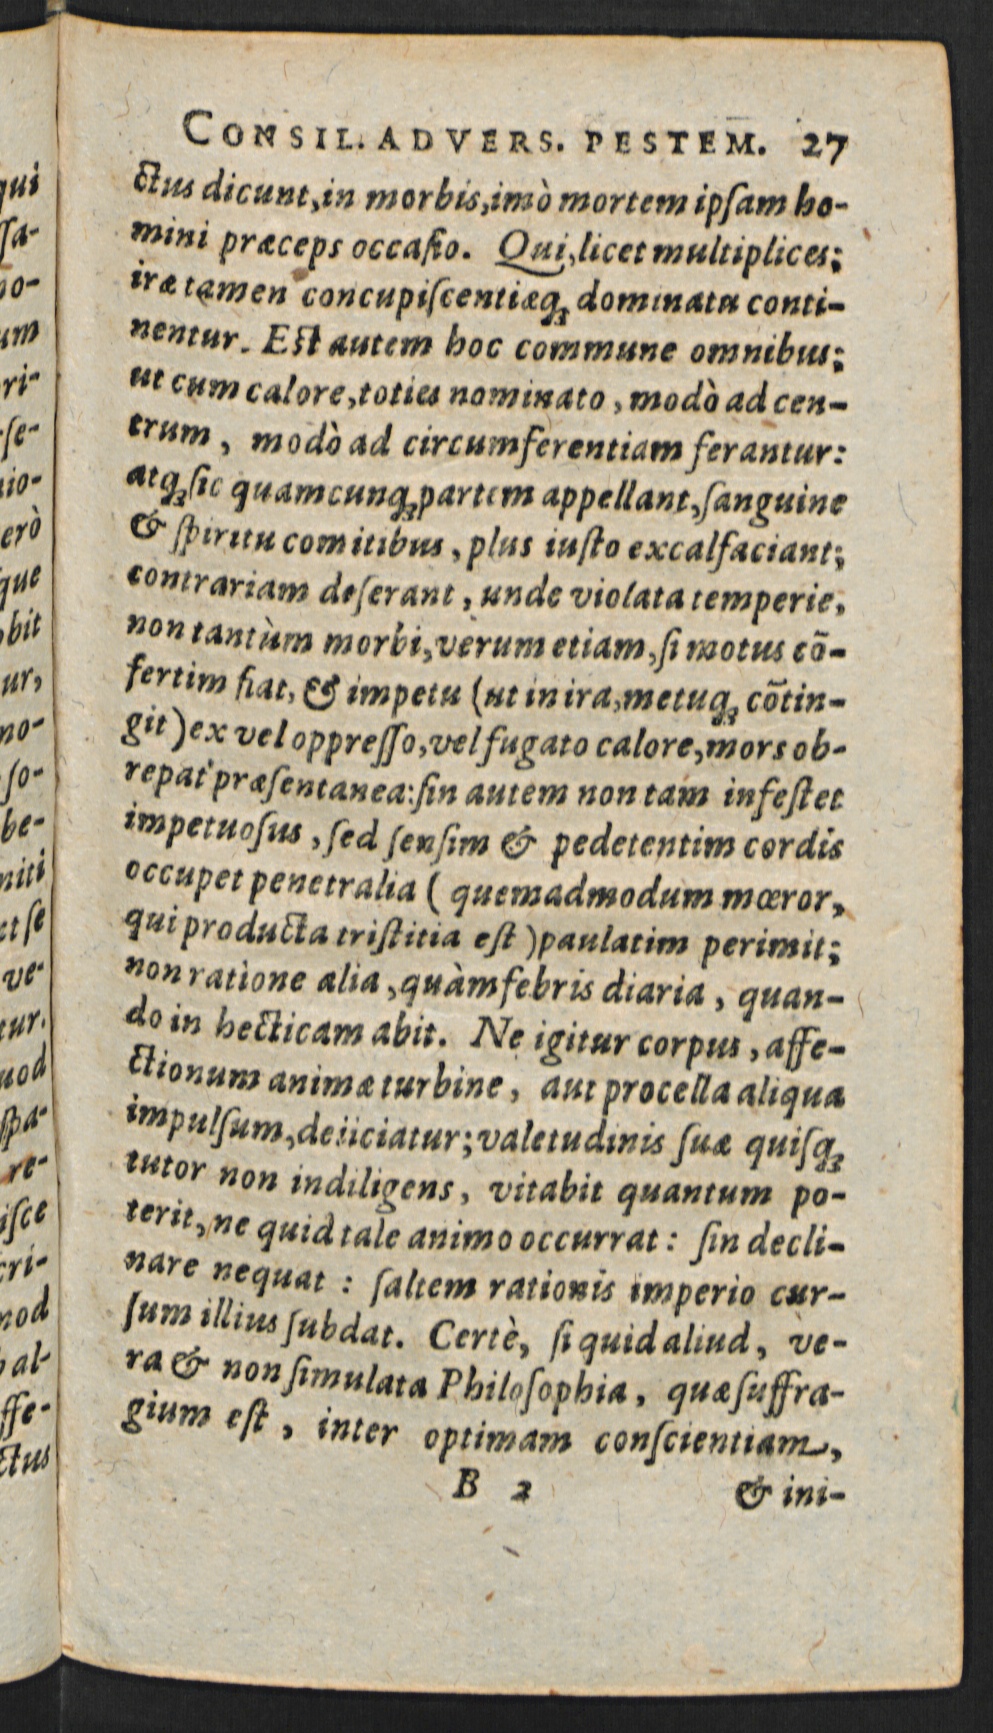 CONSIL. ADVERS. PESTEM. 27
ctus dicunt, in morbis, imò mortem ipſam ho-
mini præceps occaſio. Qui, licet multiplices;
iræ tamen concupiſcentiæq́ꝫ dominatu conti-
nentur. Eſt autem hoc commune omnibus;
ut cum calore, toties nominato, modò ad cen-
trum, modò ad circumferentiam ferantur:
atqꝫ ſic quamcunqꝫ partem appellant, ſanguine
& ſpiritu comitibus, plus iuſto excalfaciant;
contrariam deſerant, unde violata temperie,
non tantùm morbi, verum etiam, ſi motus cō-
fertim fiat, & impetu (ut in ira, metuqꝫ cōtin-
git) ex vel oppreſſo, vel fugato calore, mors ob-
repat præſentanea: ſin autem non tam infeſtet
impetuoſus, ſed ſenſim & pedetentim cordis
occupet penetralia ( quemadmodum mœror,
qui producta triſtitia eſt ) paulatim perimit;
non ratione alia, quàm febris diaria, quan-
do in hecticam abit. Ne igitur corpus, affe-
ctionum animæ turbine, aut procella aliqua
impulſum, deiiciatur; valetudinis ſuæ quiſqꝫ
tutor non indiligens, vitabit quantum po-
terit, ne quid tale animo occurrat: ſin decli-
nare nequat: ſaltem rationis imperio cur-
ſum illius ſubdat. Certè, ſi quid aliud, ve-
ra & non ſimulata Philoſophia, quæ ſuffra-
gium eſt, inter optimam conſcientiam,
B 2 & ini-
qui
ſſa-
no-
um
ri-
ſe-
nio-
erò
que
obit
ur,
mo-
ſo-
be-
niti
et ſe
ve-
tur.
uod
ſpa-
re-
iſce
cri-
mod
al-
ffe-
ctus